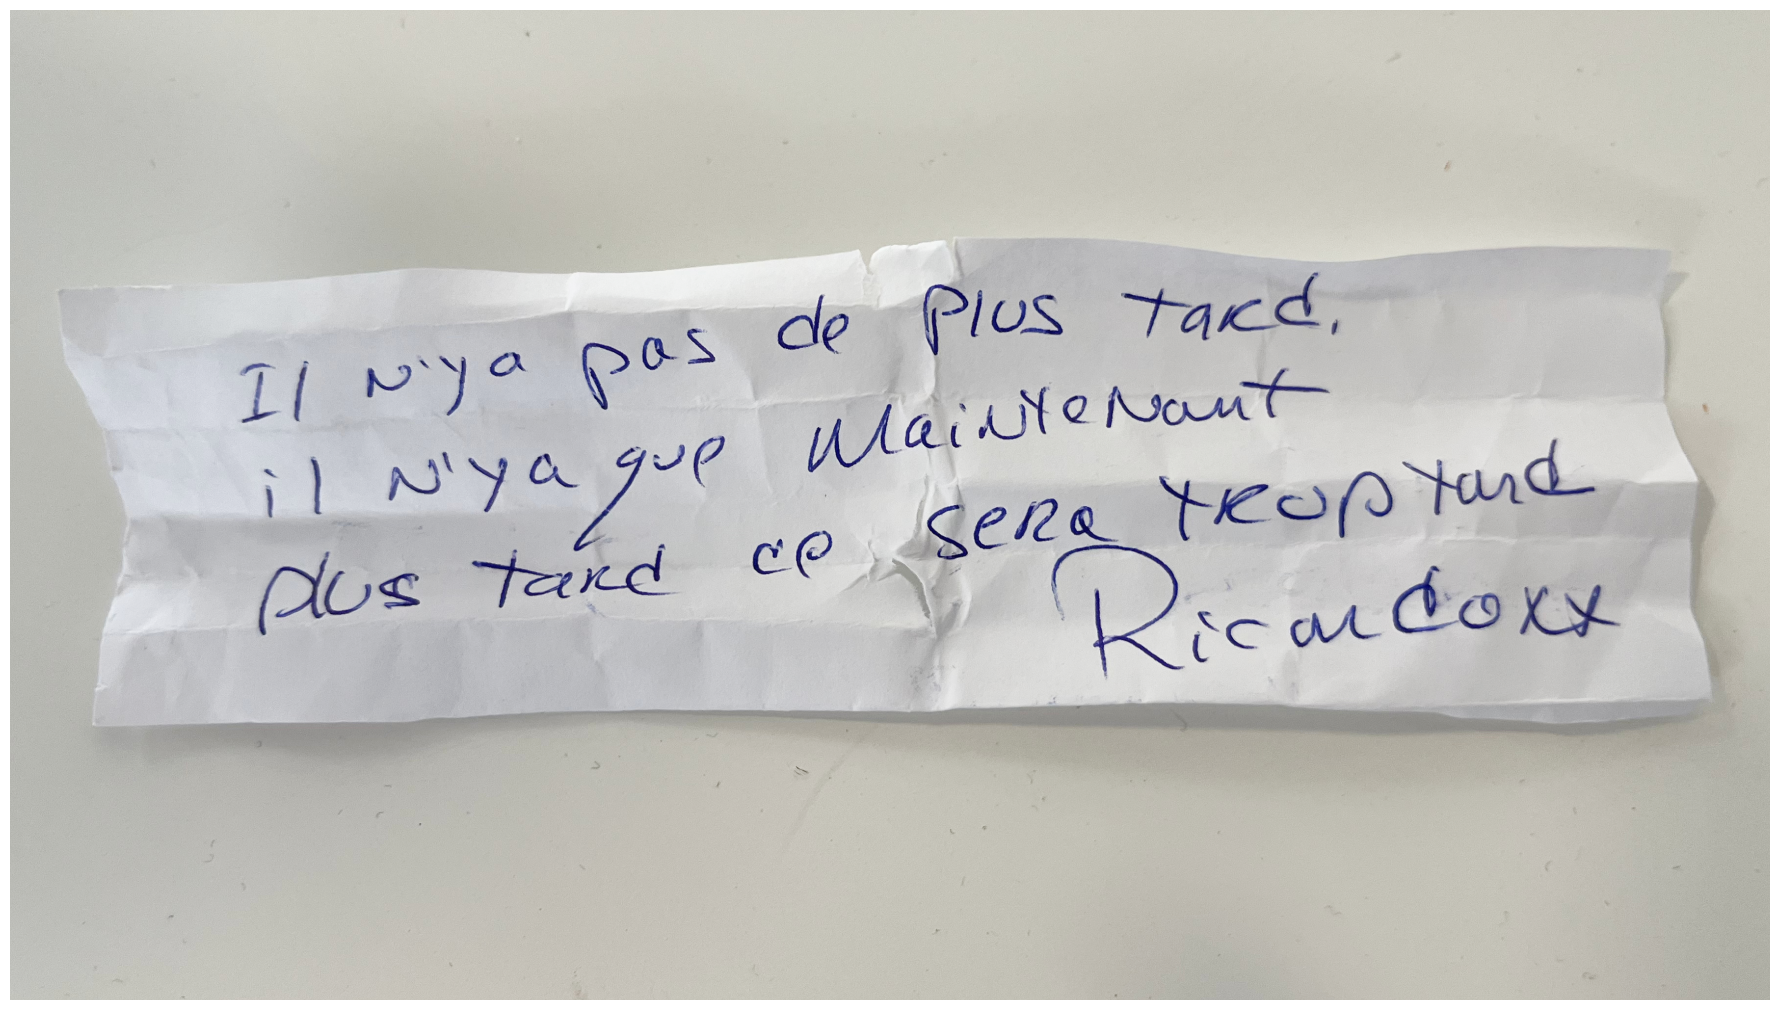 Il n'ya pas de plus tard.
il n'ya que Maintenant
plus tard ce sera trop tard
Ricardoxx